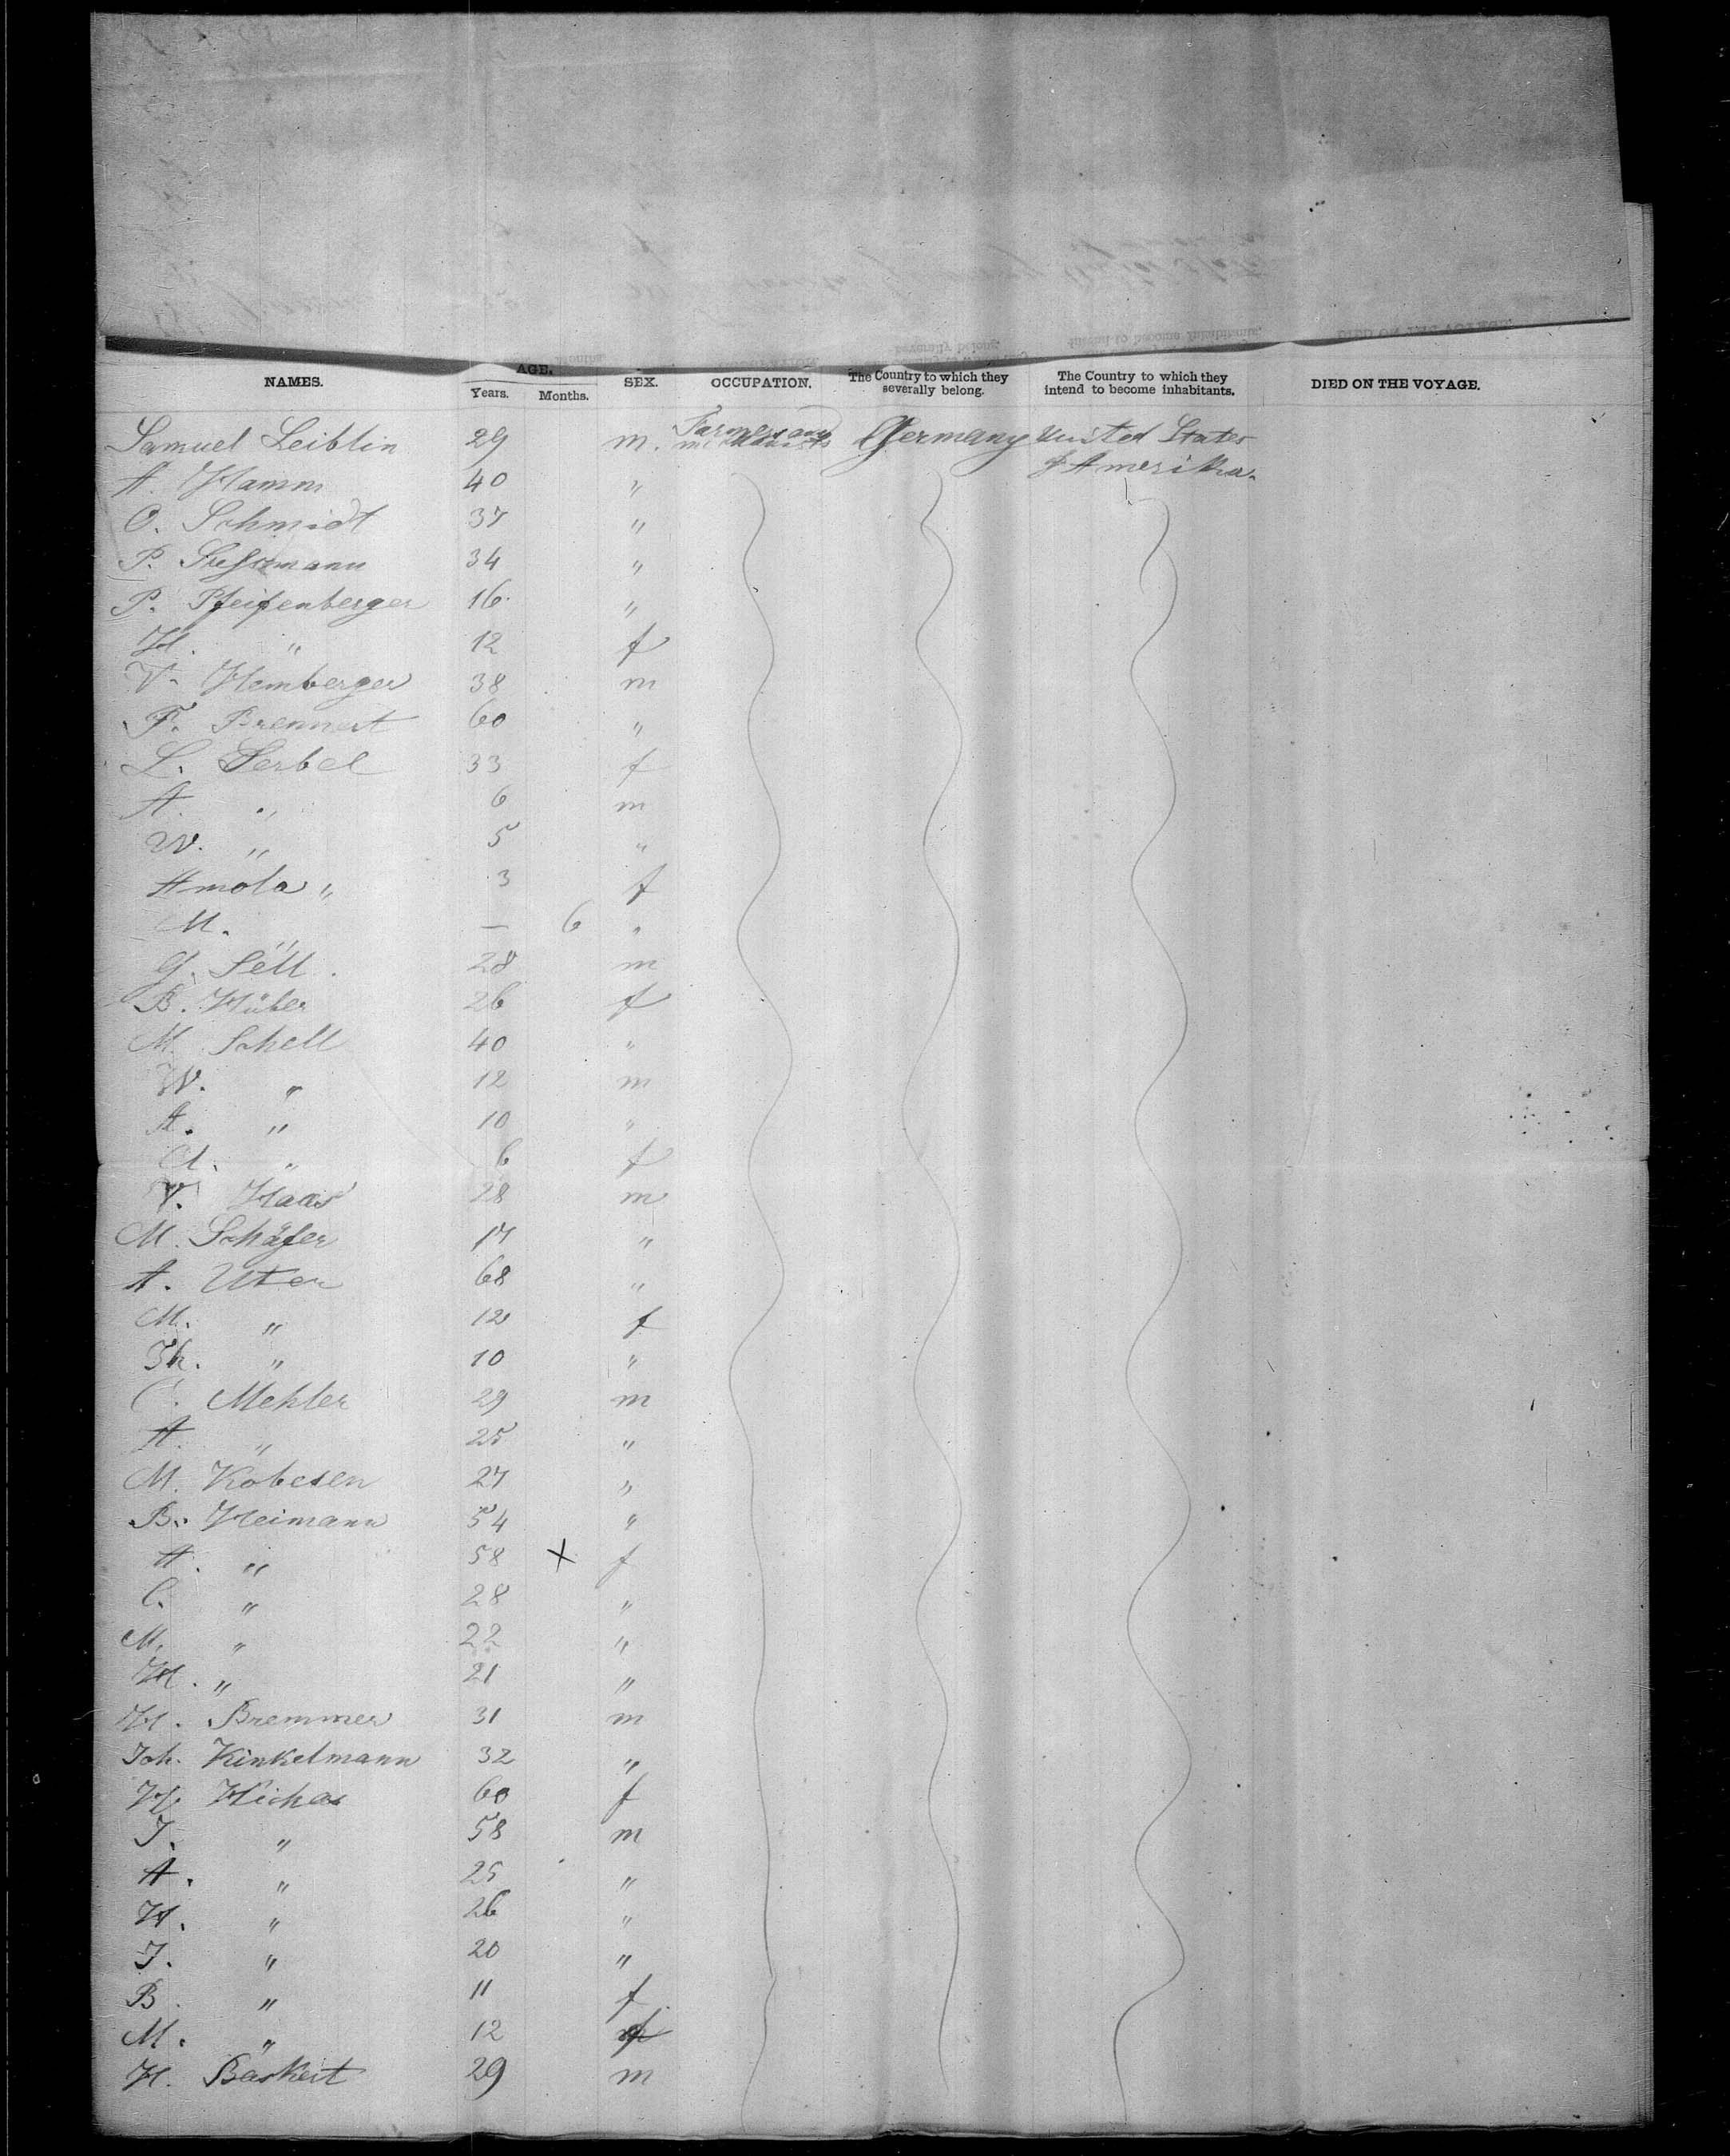 NAMES. AGE. SEX. OCCUPATION. The Country to which they severally belong. The Country to which they intend to become inhabitants. DIED ON THE VOYAGE.
Years. Months.
Samuel Leiblin 29 m. Farmers and Germany United States
of Amerika.
A. Hamm 40 "
O. Schmidt 37 "
P. 34 "
P. Pfeifenberger 16 "
H. " 12 f
V. Hemberger 38 m
F. Brennert 60 "
L. Serbel 33 f
A. " 6 m
W. " 5 "
Amola " 3 f
M. " — 6 "
G. Sell 28 m
B. Hüber 26 f
M. Schell 40 "
W. " 12 m
A. " 10 "
Cl. " 6 f
V. Haas 28 m
M. Schäfer 17 "
A. Uter 68 "
M. " 12 f
Th. " 10 "
C. Mehler 29 m
A. " 25 "
M. Kobesen 27 "
B. Heimann 54 "
A. " 58 X f
C. " 28 "
M. " 22 "
H. " 21 "
H. Bremmer 31 m
Joh. Kinkelmann 32 "
H. Hichas 60 f
J. " 58 m
A. " 25 "
H. " 26 "
J. " 20 "
B. " 11 f
M. " 12 f
H. Baskeit 29 m